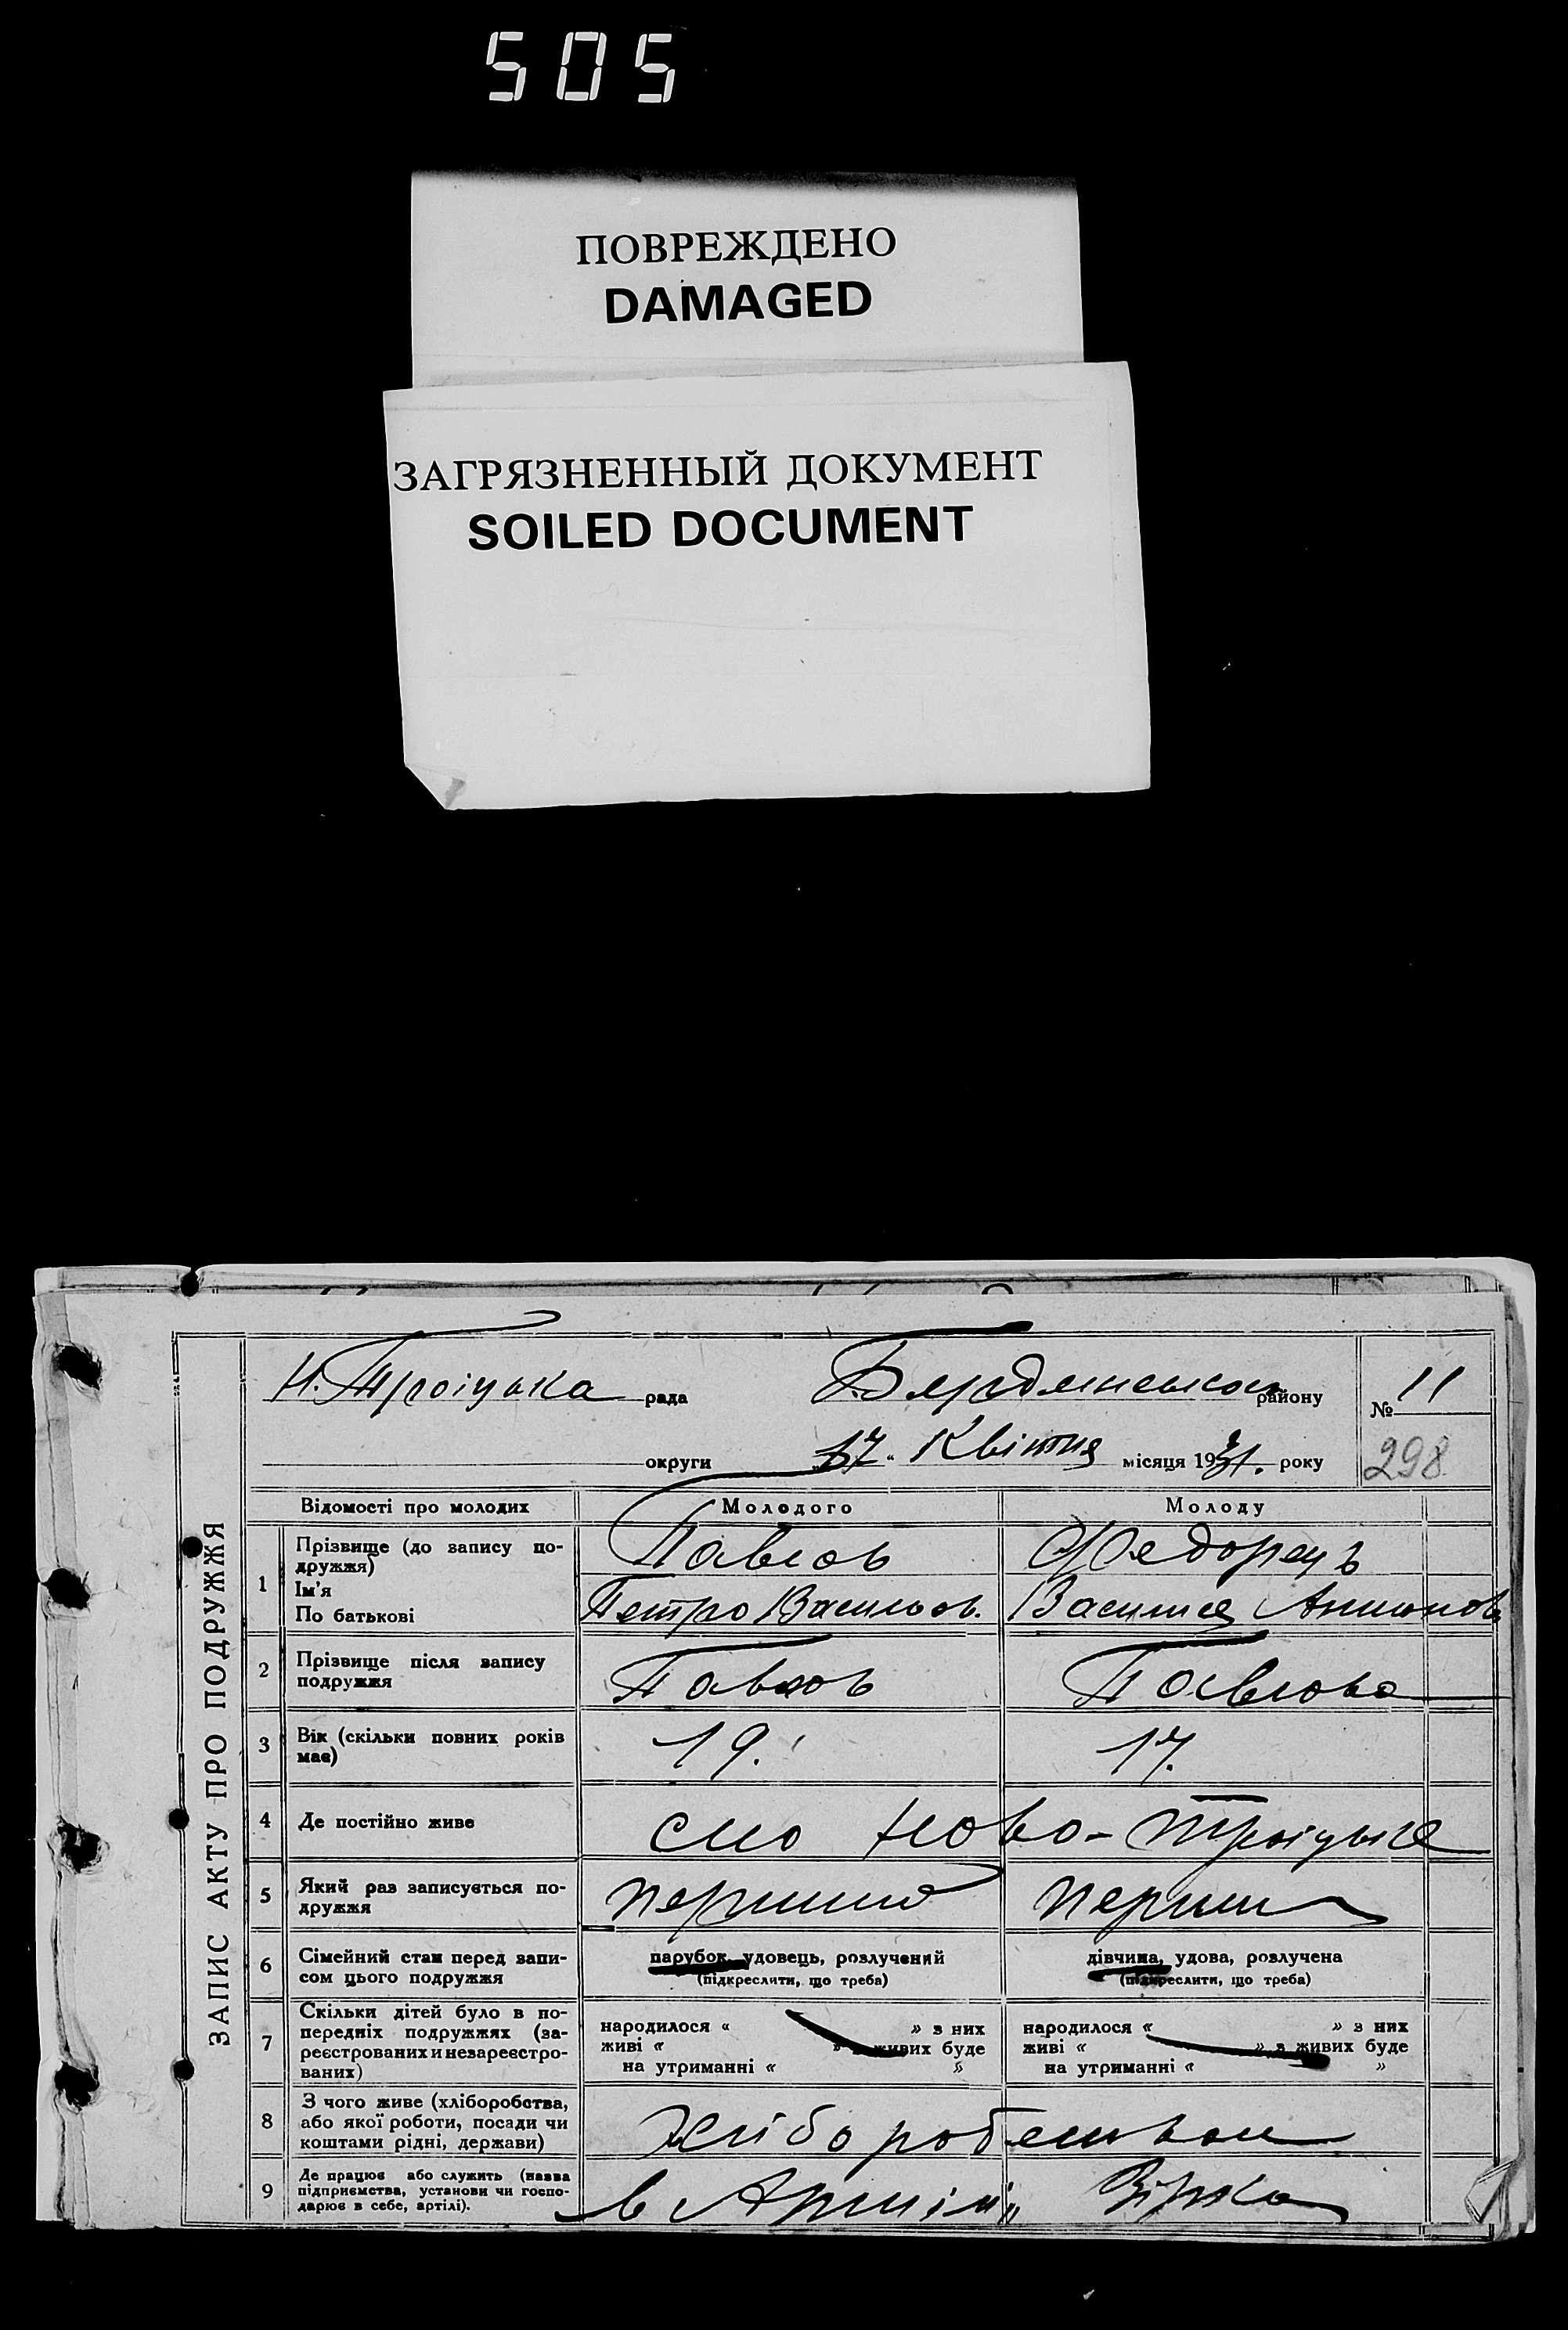 505
ПОВРЕЖДЕНО
DAMAGED
ЗАГРЯЗНЕННЫЙ ДОКУМЕНТ
SOILED DOCUMENT
ЗАПИС АКТУ ПРО ПОДРУЖЖЯ
Н. Троіцька рада Бердянської району № 11
округи „17“ Квітня місяця 1931. року 298
Відомості про молодих Молодого Молоду
1 Прізвище (до запису по-
дружжя) Павлов Федорець
Ім'я
По батькові Петро Васильов. Василиса Антонов
2 Прізвище після запису
подружжя Павлов Павлова
3 Вік (скільки повних років
має) 19. 17.
4 Де постійно живе село Ново-Троіцьке
5 Який раз записується по-
дружжя перший перши
6 Сімейний стан перед запи-
сом цього подружжя
парубок, удовець, розлучений
(підкреслити, що треба)
дівчина, удова, розлучена
(підкреслити, що треба)
7 Скільки дітей було в по-
передніх подружжях (за-
реєстрованих и незареєстро-
ваних)
народилося « » з них
живі « » з живих буде
на утриманні « »
народилося « » з них
живі « » з живих буде
на утриманні « »
8 З чого живе (хліборобства,
або якої роботи, посади чи
коштами рідні, держави) Хліборобством
9 Де працює або служить (назва
підприємства, установи чи госпо-
дарює в себе, артілі). в Артілі „Зірка